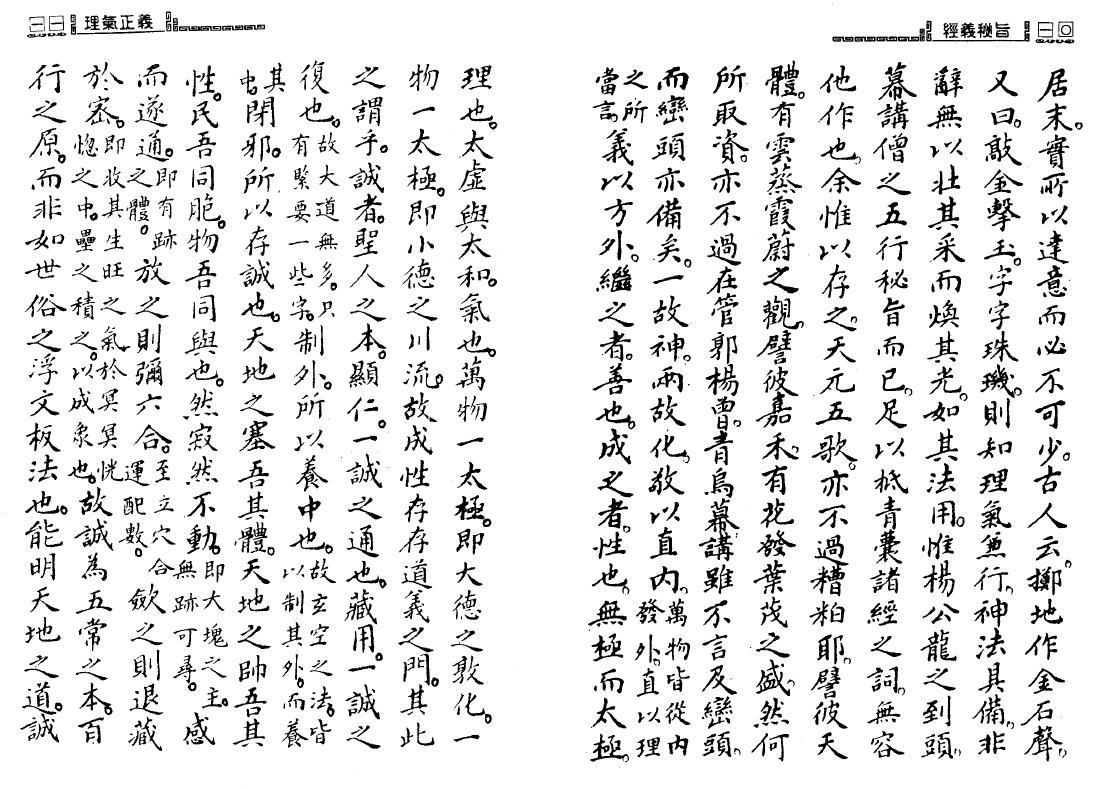 經義秘旨
一〇
居末。實所以達意而必不可少。古人云。擲地作金石聲。
又曰。敲金擊玉。字字珠璣。則知理氣兼行。神法具備。非
辭無以壯其采而煥其光。如其法用。惟楊公龍之到頭。
幕講僧之五行秘旨而已。足以柢青囊諸經之詞。無容
他作也。余惟以存之。天元五歌。亦不過糟粕耶。譬彼天
體。有雲蒸霞蔚之觀。譬彼嘉禾。有花發葉茂之盛。然何
所取資。亦不過在管郭楊曾。青烏幕講雖不言及巒頭。
而巒頭亦備矣。一故神。兩故化。敬以直內。萬物皆從內發外。直以理
之所當言。義以方外。繼之者。善也。成之者。性也。無極而太極。
一一
理氣正義
理也。太虛與太和。氣也。萬物一太極。即大德之敦化。一
物一太極。即小德之川流。故成性存存道義之門。其此
之謂乎。誠者。聖人之本。顯仁。一誠之通也。藏用。一誠之
復也。故大道無多。只有緊要一些字。制外。所以養中也。故玄空之法。皆以制其外。而養
其中。閉邪。所以存誠也。天地之塞吾其體。天地之帥吾其
性。民吾同胞。物吾同與也。然寂然不動。即大塊之主。無跡可尋。感
而遂通。即有跡之體。放之則彌六合。至立穴合運配數。斂之則退藏
於密。即收其生旺之氣於冥冥恍惚之中。壘之積之。以成象也。故誠為五常之本。百
行之原。而非如世俗之浮文板法也。能明天地之道。誠